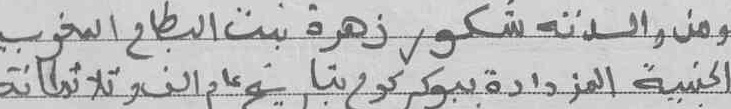 ومن والدته شكور زهرة بنت البطاح المغرب
الجنسية المزدادة ببوكركوح بتاريخ عام الف وتلاثمائة